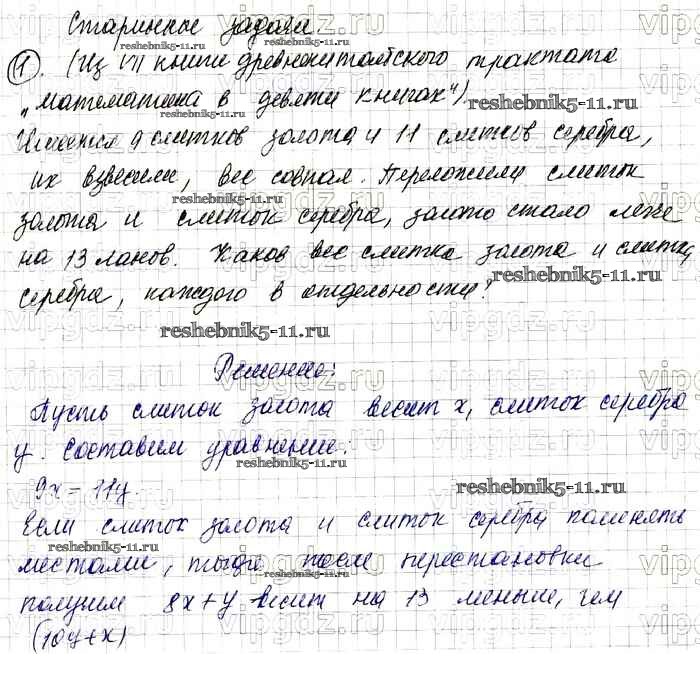 Старинные задачи
① . (Из VII книги древнекитайского трактата
„математика в девяти книгах")
Имеется 9 слитков золота и 11 слитков серебра,
их взвесили, вес совпал. Переложили слиток
золота и слиток серебра, золото стало легче
на 13 ланов. Каков вес слитка золота и слитка
серебра, каждого в отдельности?
Решение:
Пусть слиток золота весит x, слиток серебра
y. Составим уравнение:
9x = 11y.
Если слиток золота и слиток серебра поменять
местами, тогда после перестановки
получим 8x+y весит на 13 меньше, чем
(10y+x)
reshebnik5-11.ru
reshebnik5-11.ru
reshebnik5-11.ru
reshebnik5-11.ru
reshebnik5-11.ru
reshebnik5-11.ru
reshebnik5-11.ru
reshebnik5-11.ru
reshebnik5-11.ru
vipgdz.ru